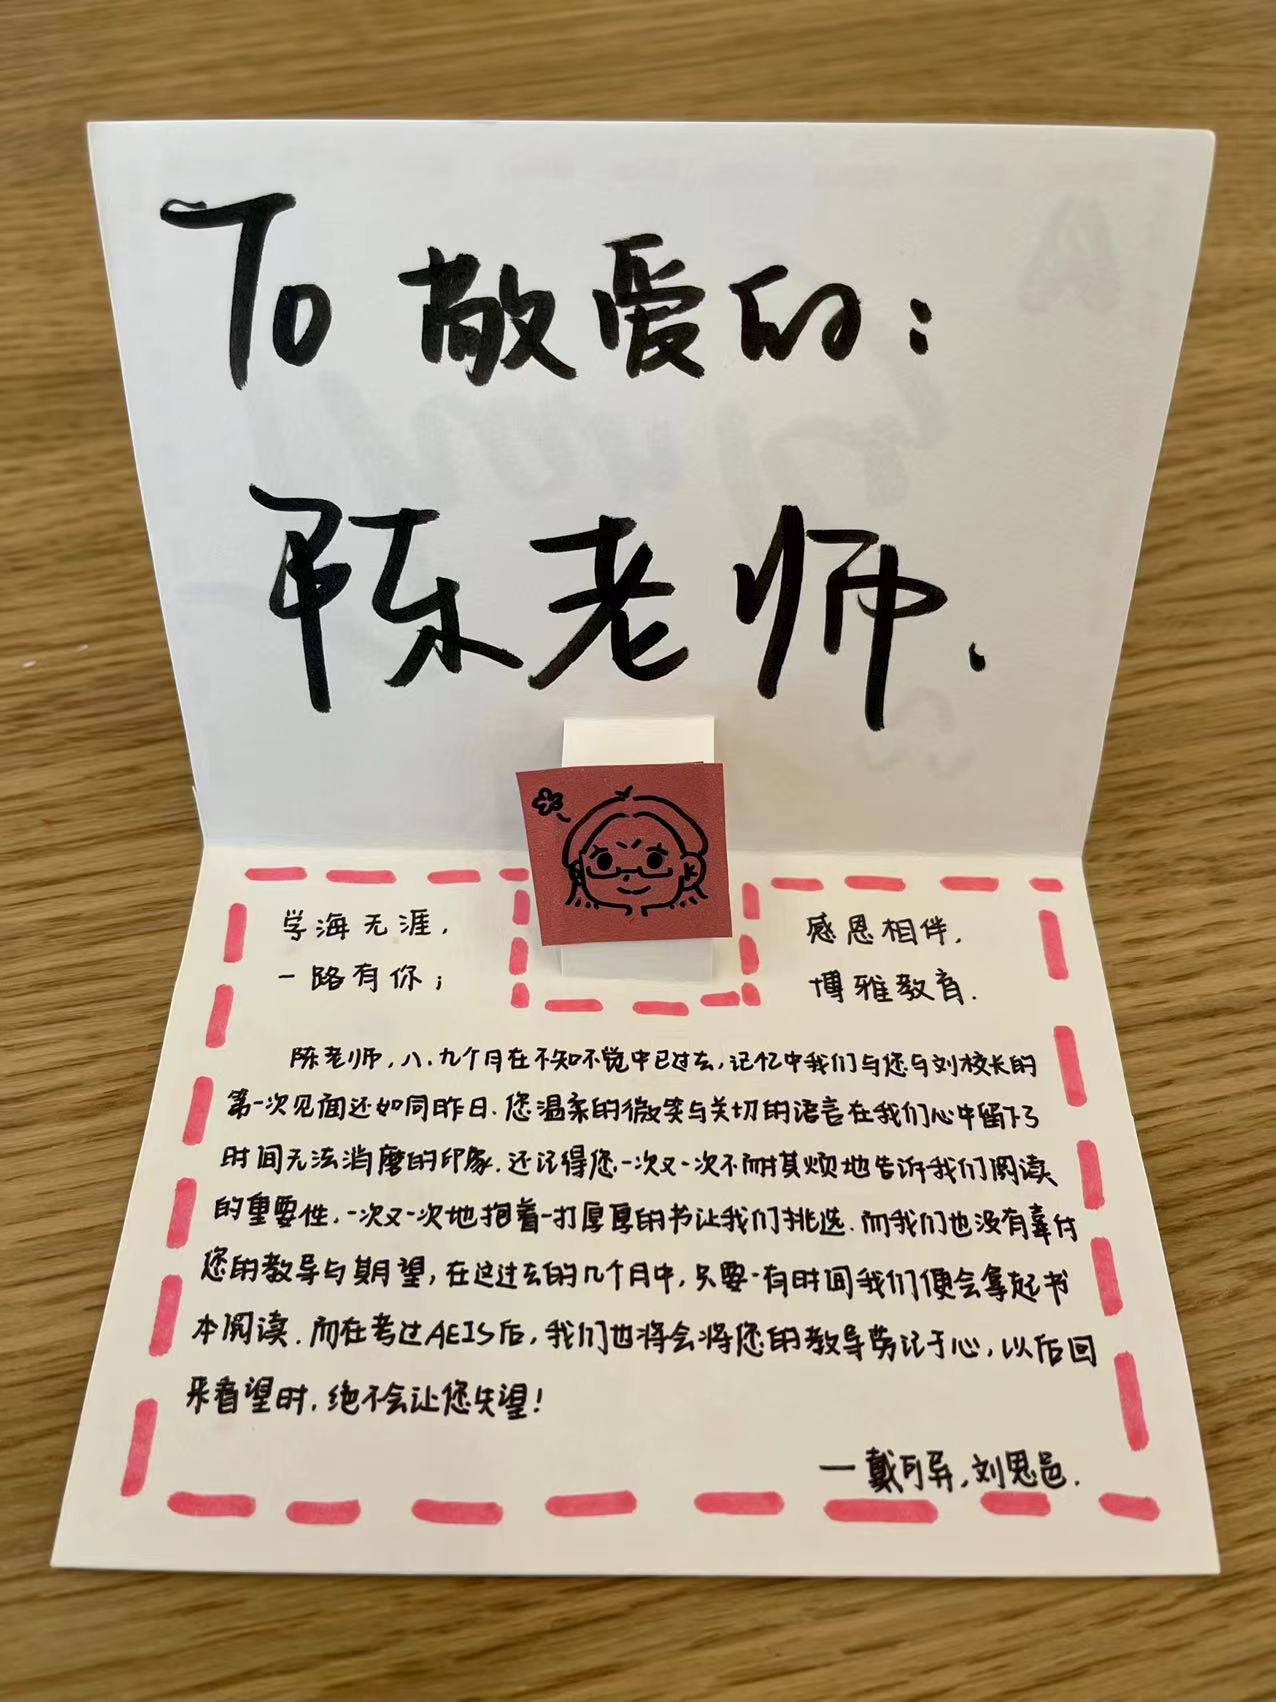 To 敬爱的：
陈老师.
学海无涯，
一路有你；
感恩相伴，
博雅教育.
陈老师，八、九个月在不知不觉中已过去，记忆中我们与您与刘校长的
第一次见面还如同昨日.您温柔的微笑与关切的语言在我们心中留下了
时间无法消磨的印象.还记得您一次又一次不耐其烦地告诉我们阅读
的重要性，一次又一次地抱着一打厚厚的书让我们挑选.而我们也没有辜付
您的教导与期望，在这过去的几个月中，只要一有时间我们便会拿起书
本阅读.而在考过AEIS后，我们也将会将您的教导劳记于心，以后回
来看望时，绝不会让您失望！
一戴可异，刘思邑.